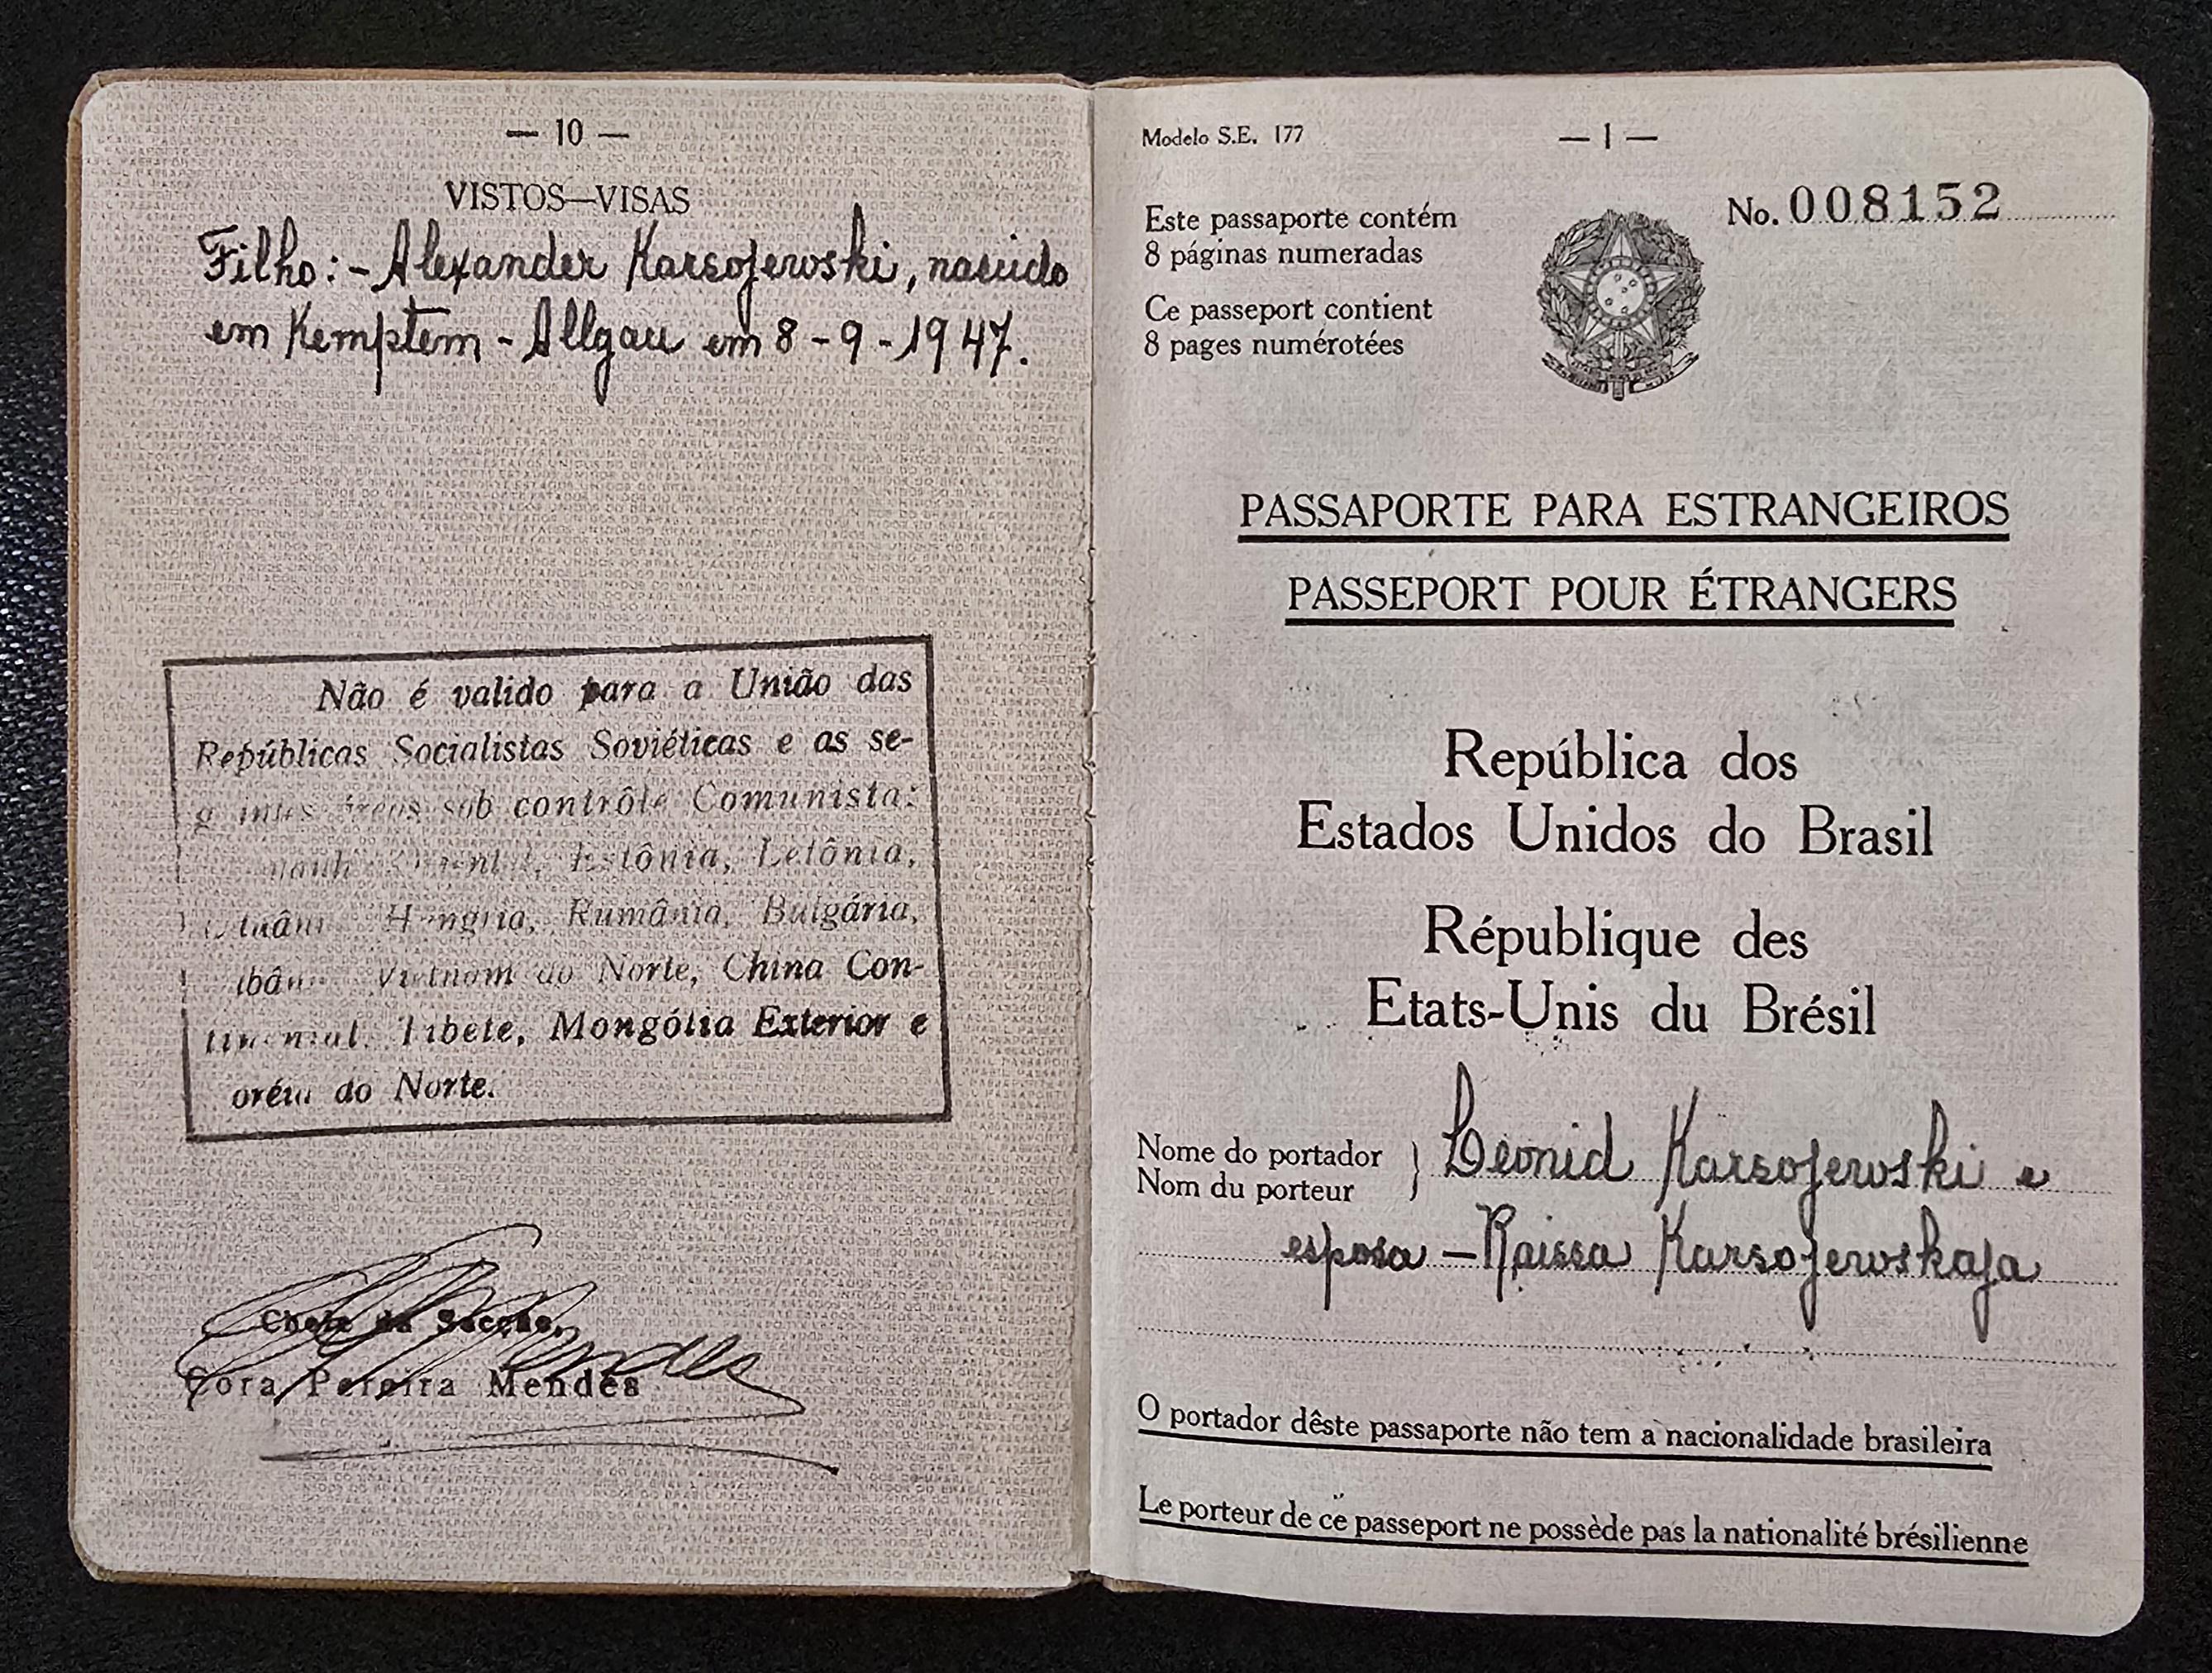 — 10 —
VISTOS—VISAS
Filho: - Alexander Karsojewski, nascido
em Kemptem - Allgau em 8 - 9 - 1947.
Não é valido para a União das
Repúblicas Socialistas Soviéticas e as se-
sob contrôle Comunista:
Estônia, Letônia,
Hungria, Rumânia, Bulgária,
Vietnam do Norte, China Con-
Tibete, Mongólia Exterior e
do Norte.
Chefe da Secção,
Cora Pereira Mendes
Modelo S.E. 177
— 1 —
Este passaporte contém
8 páginas numeradas
Ce passeport contient
8 pages numérotées
No. 008152
PASSAPORTE PARA ESTRANGEIROS
PASSEPORT POUR ÉTRANGERS
República dos
Estados Unidos do Brasil
République des
Etats-Unis du Brésil
Nome do portador
Nom du porteur
Leonid Karsojewski e
esposa — Raissa Karsojewskaja
O portador dêste passaporte não tem a nacionalidade brasileira
Le porteur de ce passeport ne possède pas la nationalité brésilienne